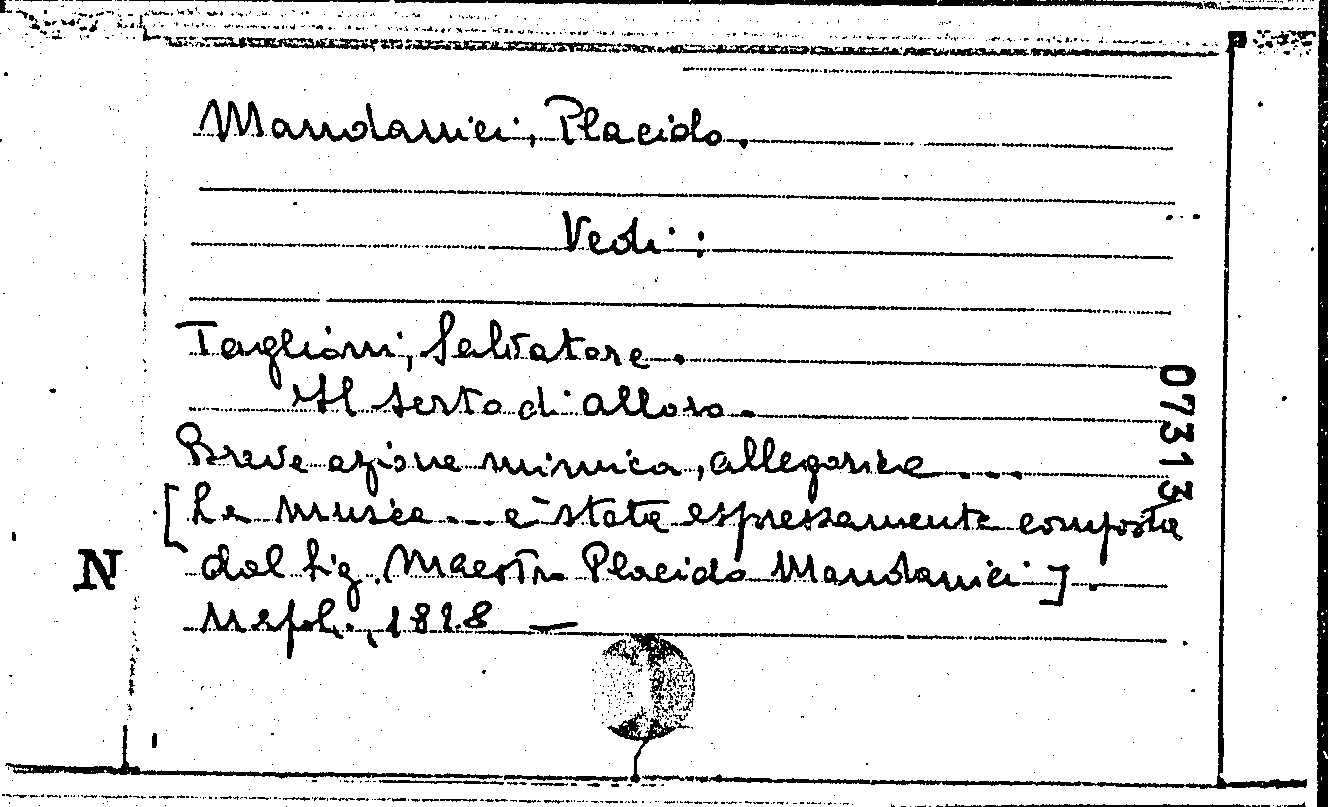 Mandanici, Placido.
Vedi:
Taglioni, Salvatore.
Il serto d'alloro.
Breve azione mimica, allegorica ....
[La musica ... è stata espressamente composta
dal Sig. Maestro Placido Mandanici].
Napoli, 1828 —
N
07313